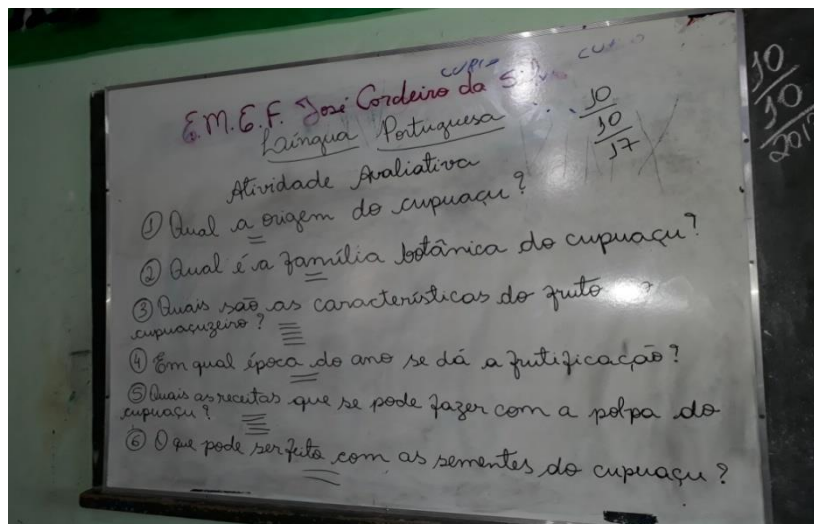 cupu cu
E.M.E.F. José Cordeiro da Silva
Laíngua Portuguesa
10
10
17
10
10
2017
Atividade Avaliativa
① Qual a origem do cupuaçu?
② Qual é a família botânica do cupuaçu?
③ Quais são as características do fruto
cupuaçuzeiro?
④ Em qual época do ano se dá a frutificacação?
⑤ Quais as receitas que se pode fazer com a polpa do
cupuaçu?
⑥ O que pode ser feito com as sementes do cupuaçu?